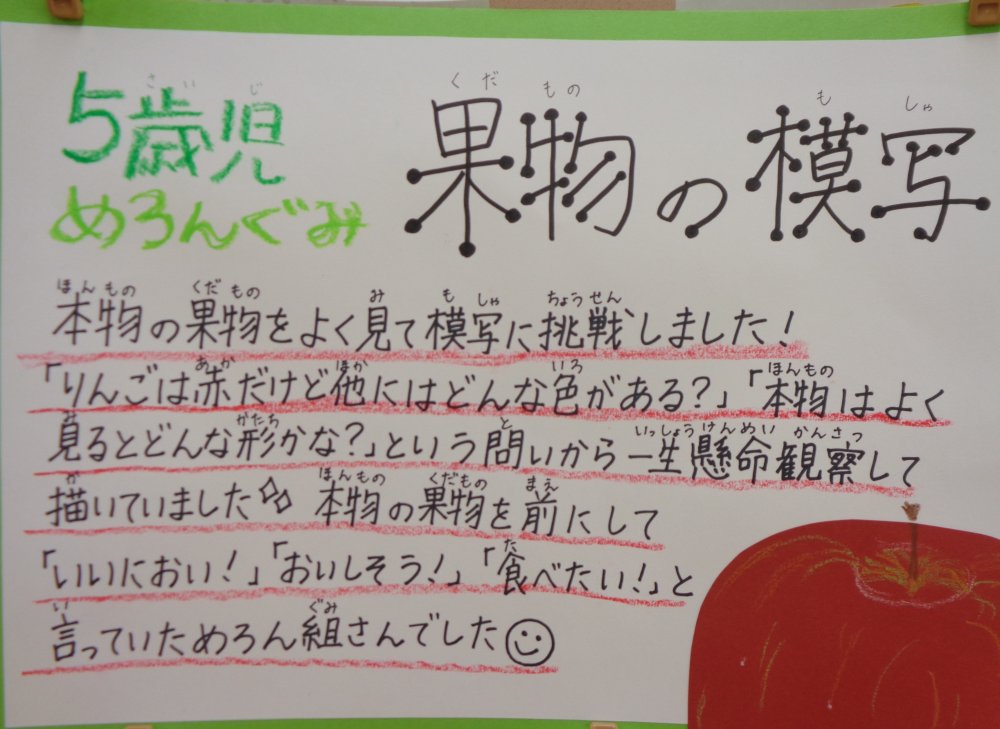 5歳児 果物の模写
めろんぐみ
本物の果物をよく見て模写に挑戦しました!
「りんごは赤だけど他にはどんな色がある?」「本物はよく
見るとどんな形かな?」という問いから一生懸命観察して
描いていました✧✧ 本物の果物を前にして
「いいにおい!」「おいしそう!」「食べたい!」と
言っていためろん組さんでした☺